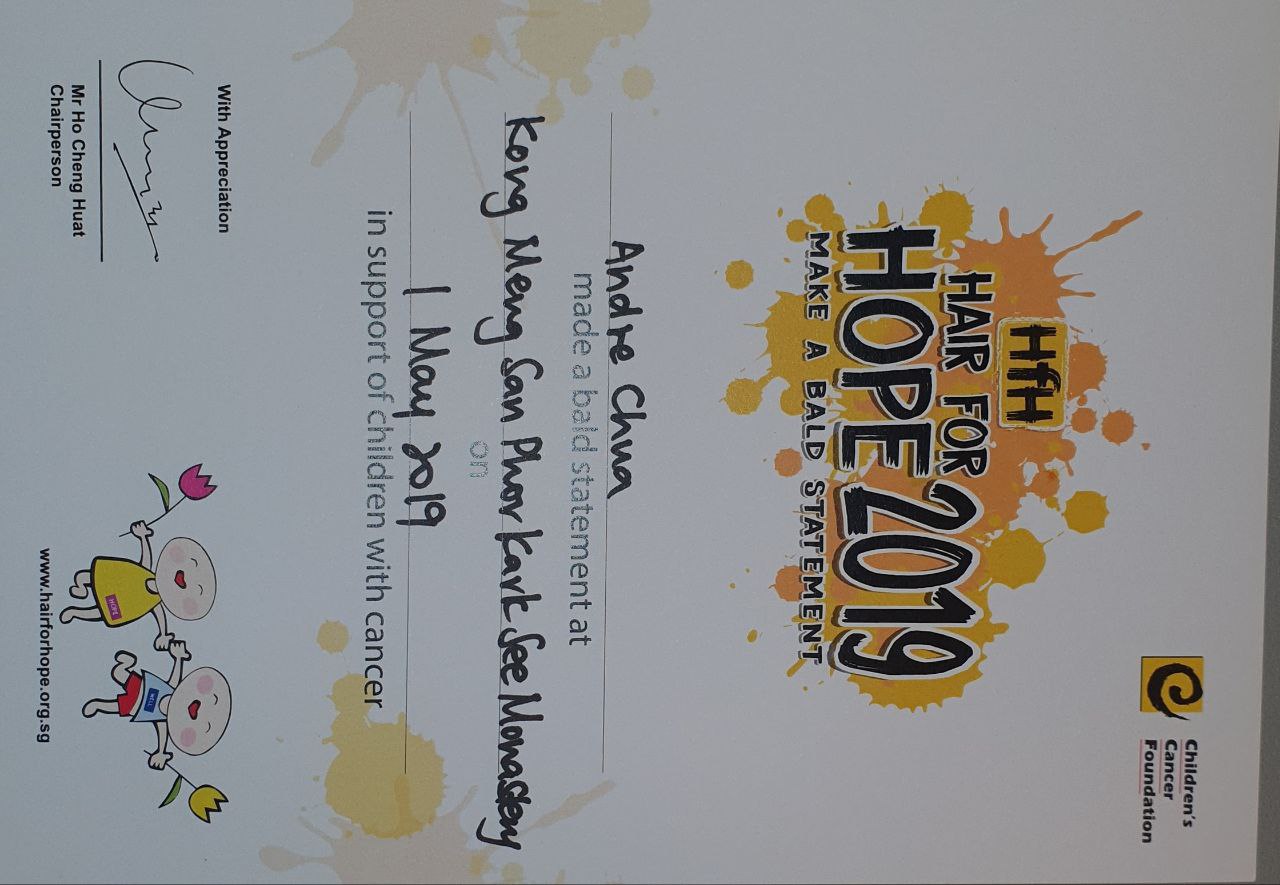 Children's
Cancer
Foundation
HfH
HAIR FOR
HOPE 2019
MAKE A BALD STATEMENT
Andre Chua
made a bald statement at
Kong Meng San Phor Kark See Monastery
on
1 May 2019
in support of children with cancer
With Appreciation
Mr Ho Cheng Huat
Chairperson
HOPE
WELL
www.hairforhope.org.sg